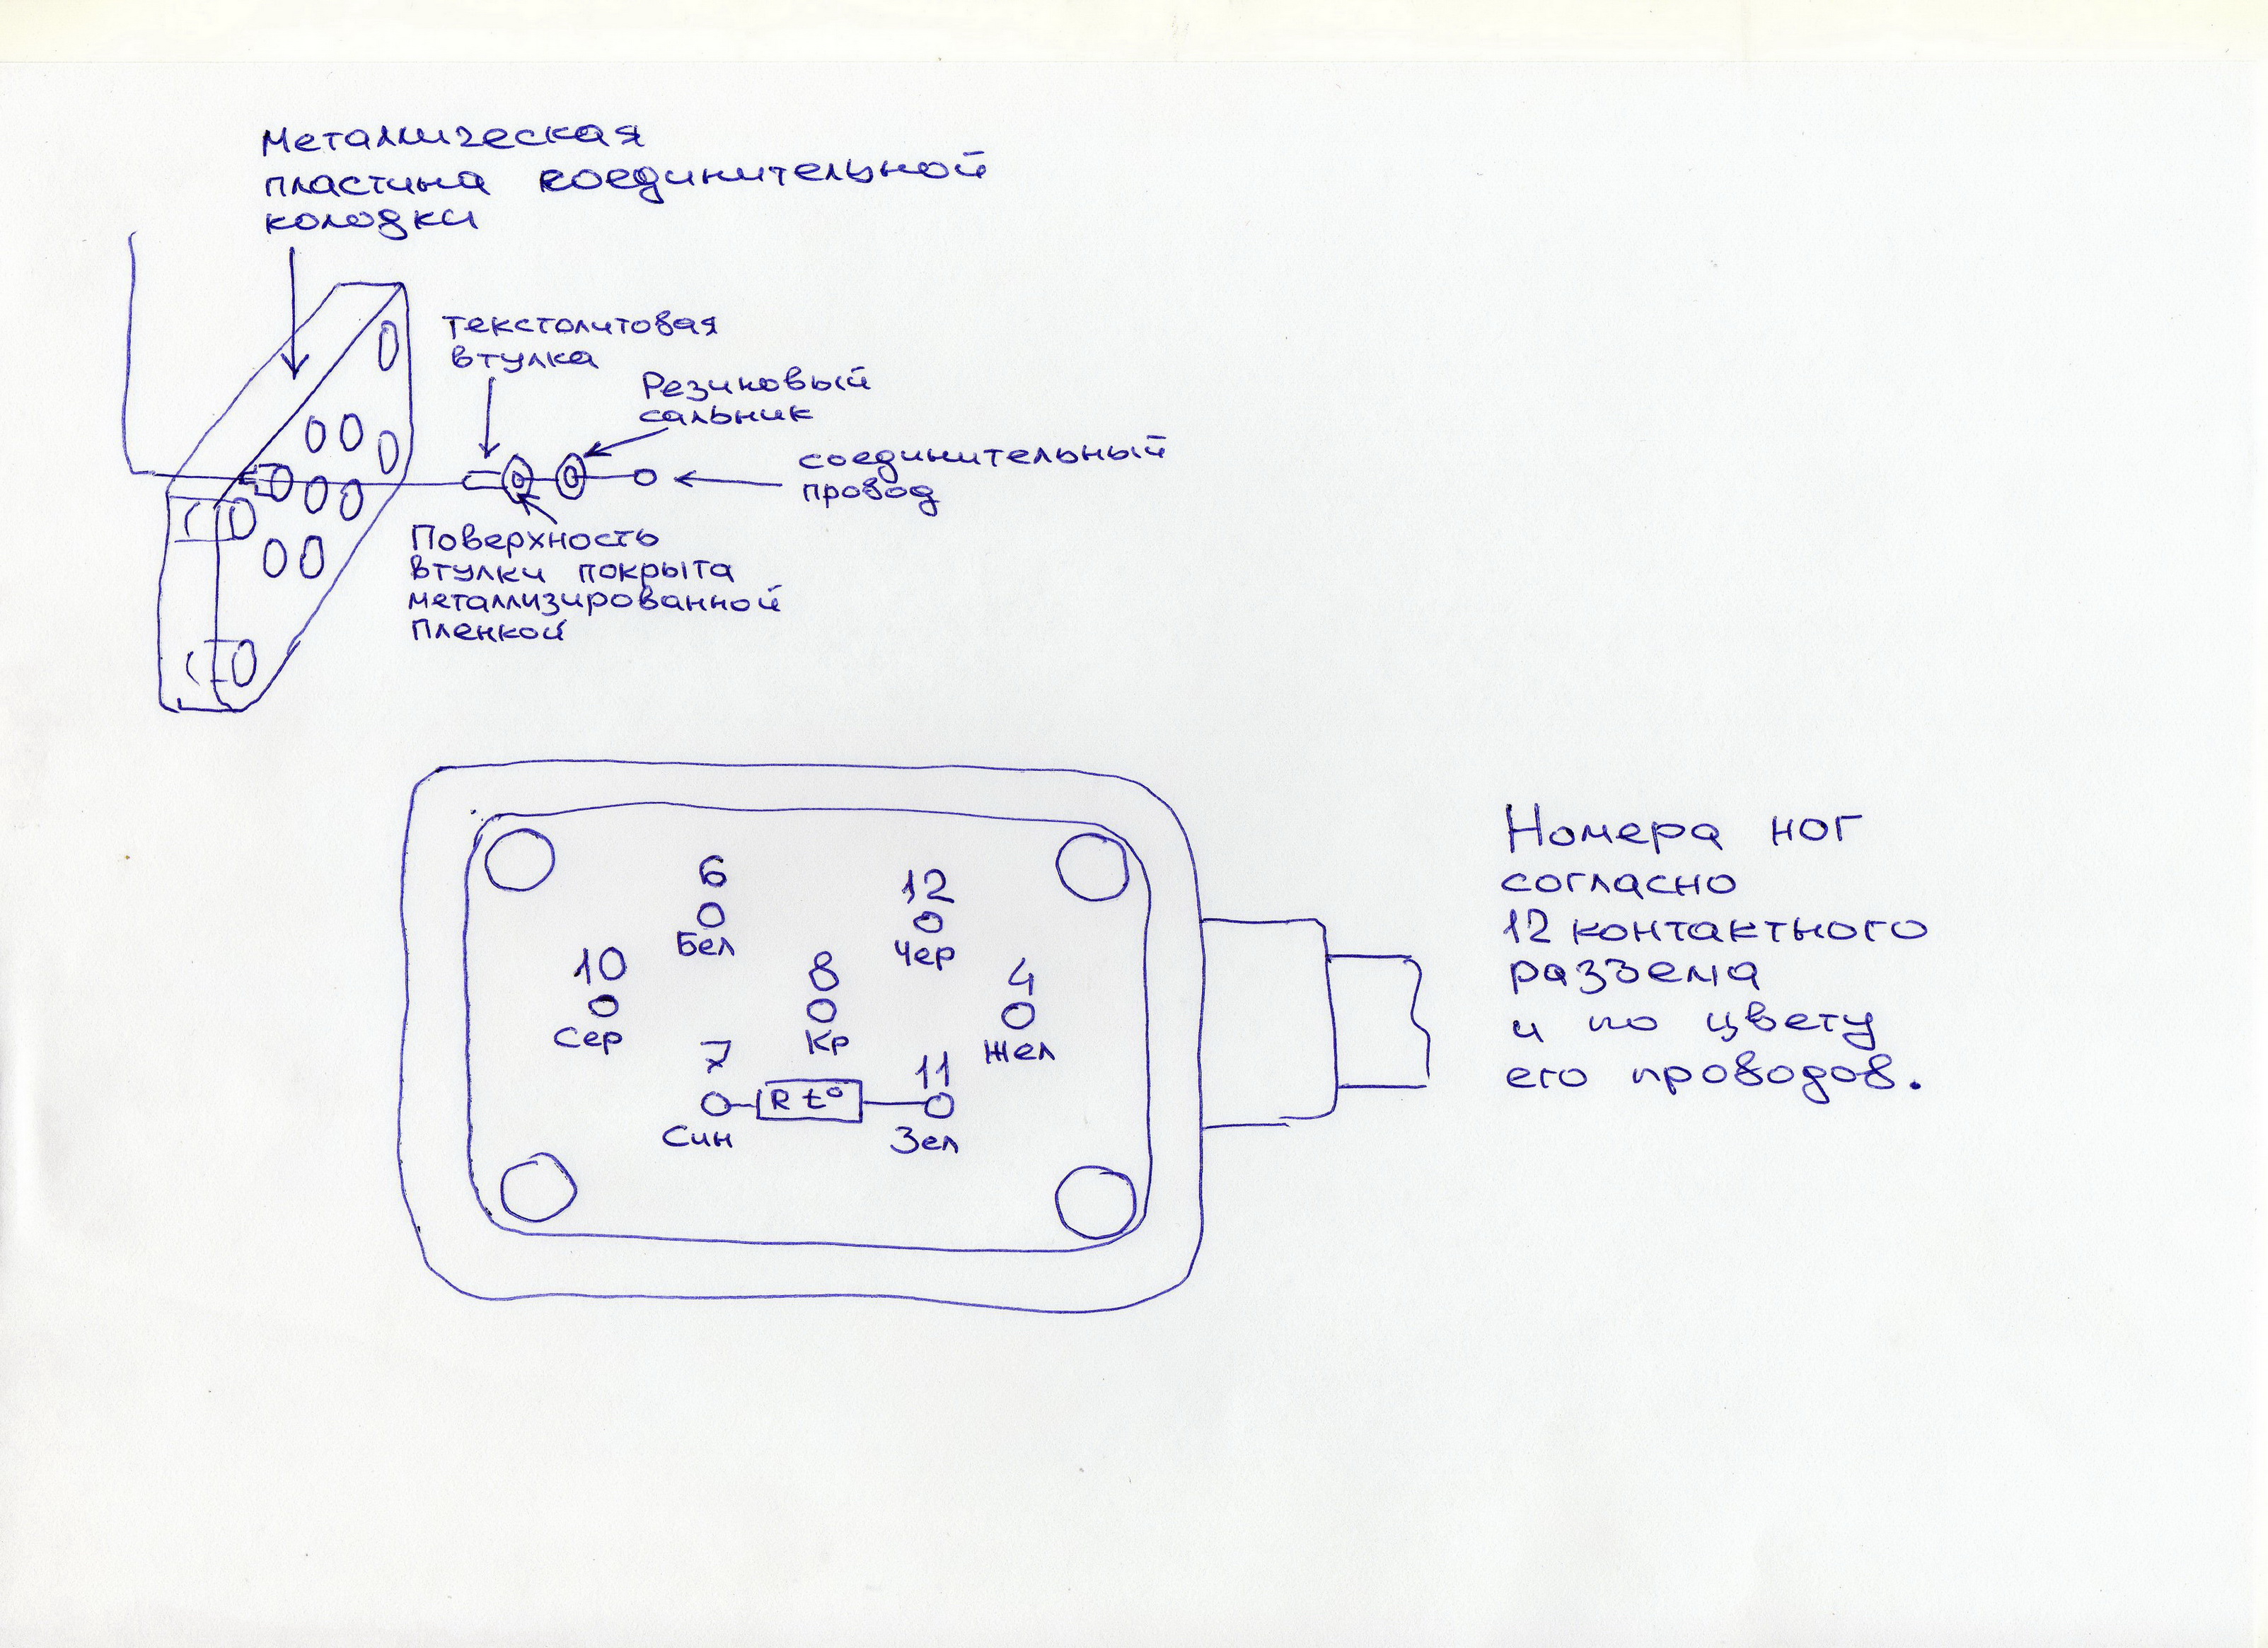 Металлическая
пластина соединительной
колодки
текстолитовая
втулка
Резиновый
сальник
соединительный
провод
Поверхность
втулки покрыта
металлизированной
пленкой
6
Бел
12
Чер
10
Сер
8
Кр
4
Жел
7
Син
R t°
11
Зел
Номера ног
согласно
12 контактного
раззема
и по цвету
его проводов.